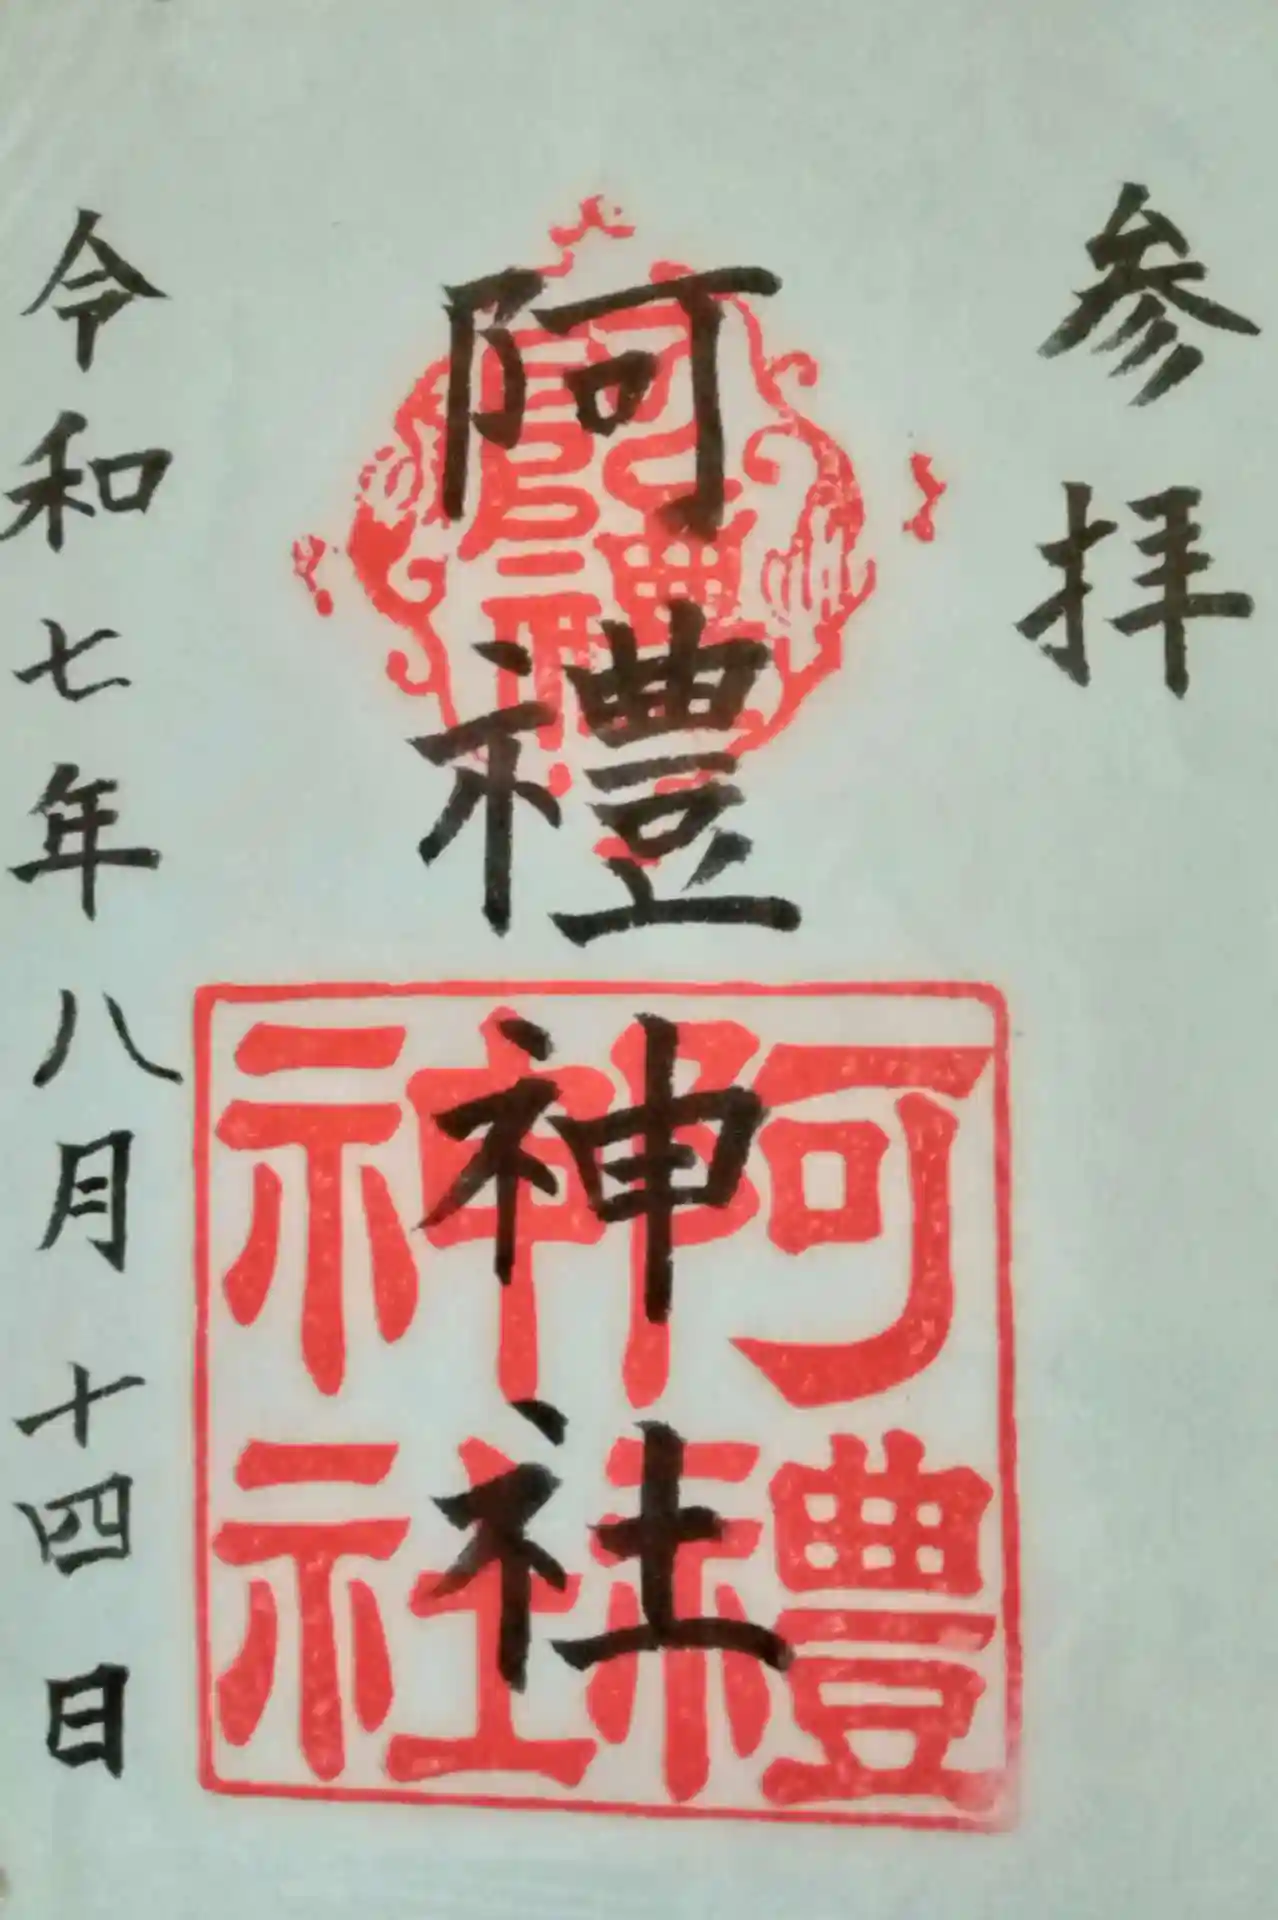 参拝
阿禮神社
阿禮
神社
令和七年八月十四日